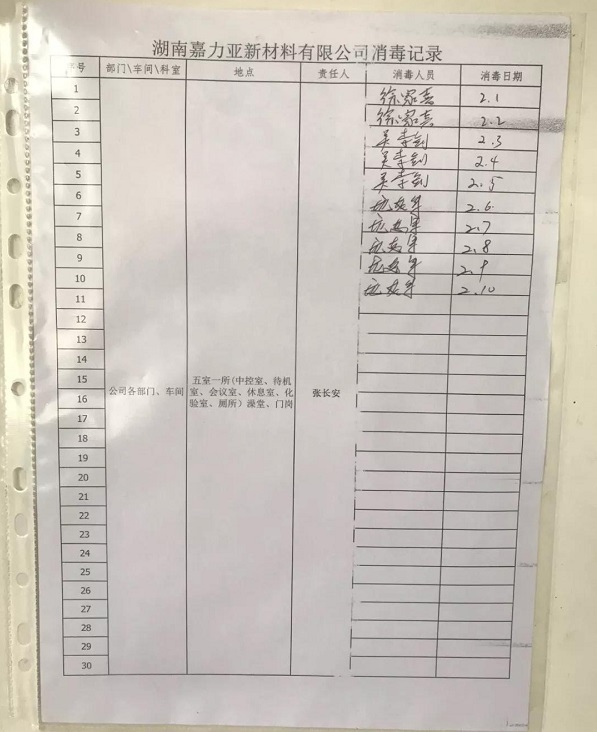 湖南嘉力亚新材料有限公司消毒记录
序号 部门\车间\科室 地点 责任人 消毒人员 消毒日期
1 2.1
2 2.2
3 2.3
4 2.4
5 2.5
6 2.6
7 2.7
8 2.8
9 2.9
10 2.10
11
12
13
14
15
16
17
18
19
20
21
22
23
24
25
26
27
28
29
30
公司各部门、车间
五室一所(中控室、待机
室、会议室、休息室、化
验室、厕所）澡堂、门岗
张长安